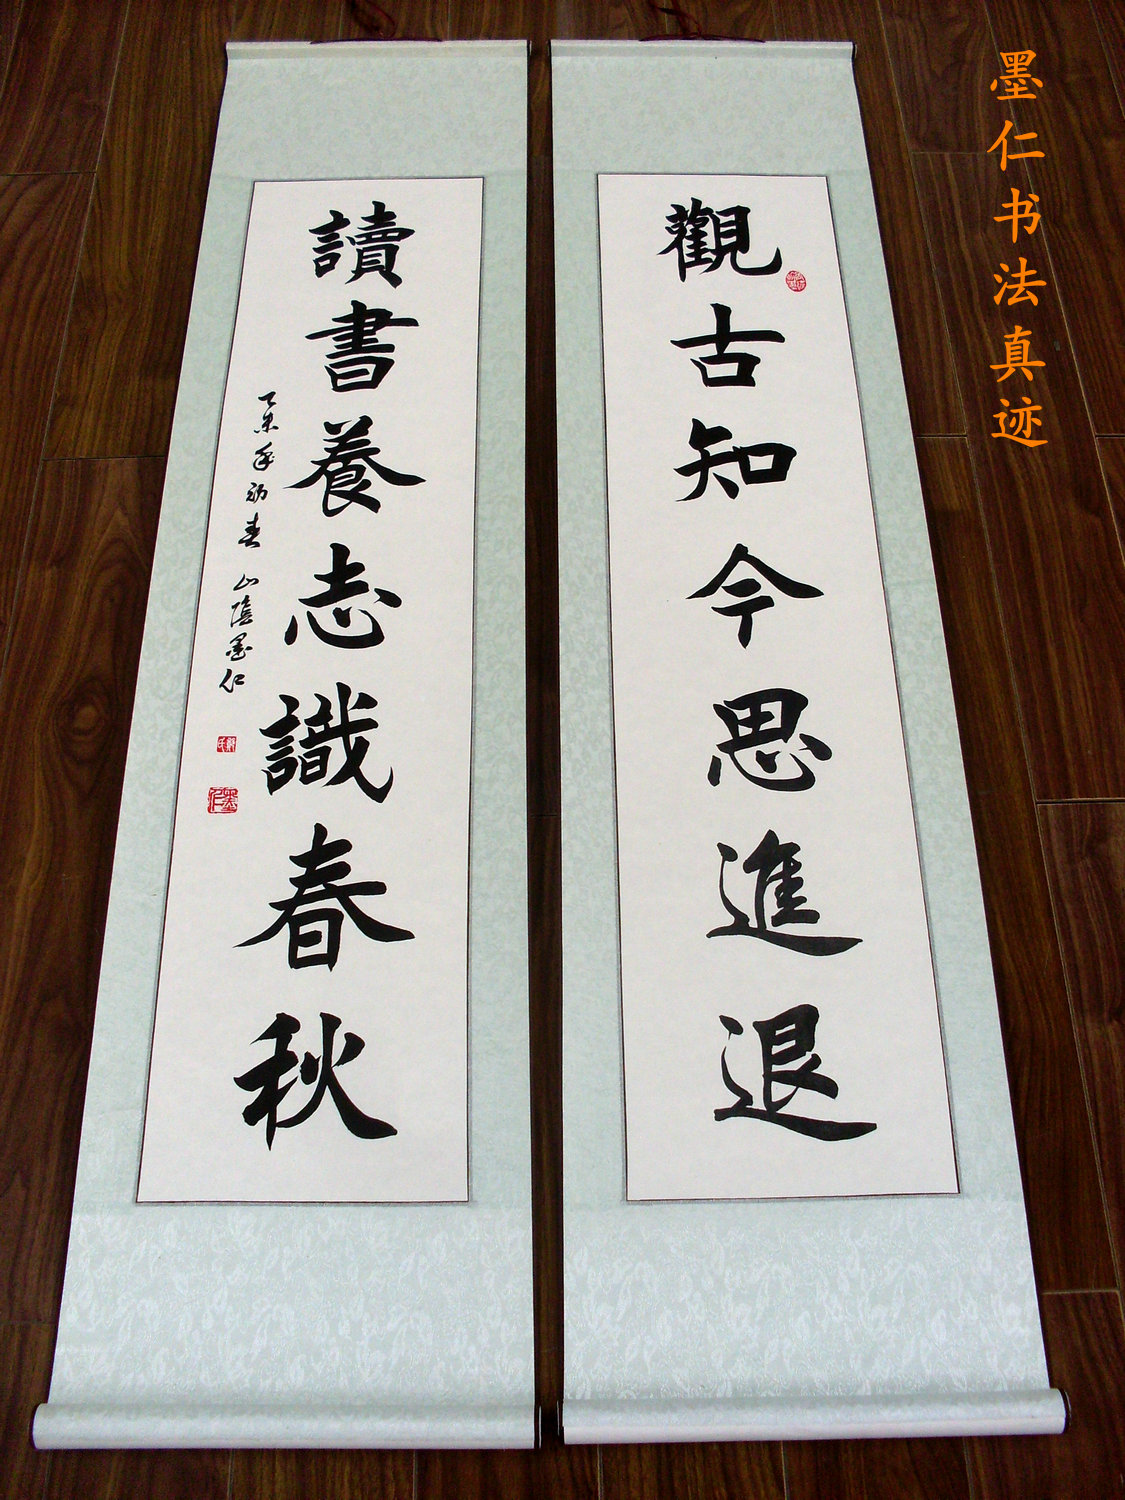 觀古知今思進退
讀書養志識春秋
乙未年初春 山陰墨仁
墨仁
墨仁书法真迹